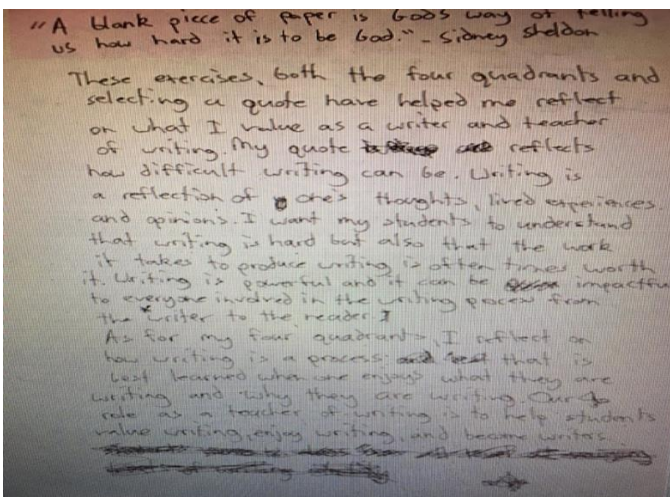 "A blank piece of paper is God's way of telling
us how hard it is to be God." - Sidney Sheldon
These exercises, both the four quadrants and
selecting a quote have helped me reflect
on what I value as a writer and teacher
of writing. My quote reflects
how difficult writing can be. Writing is
a reflection of one's thoughts, lived experiences,
and opinions. I want my students to understand
that writing is hard but also that the work
it takes to produce writing is often times worth
it. Writing is powerful and it can be impactful
to everyone involved in the writing process from
the writer to the reader.
As for my four quadrants, I reflect on
how writing is a process that is
best learned when one enjoys what they are
writing and why they are writing. Our
role as a teacher of writing is to help students
value writing, enjoy writing, and become writers.